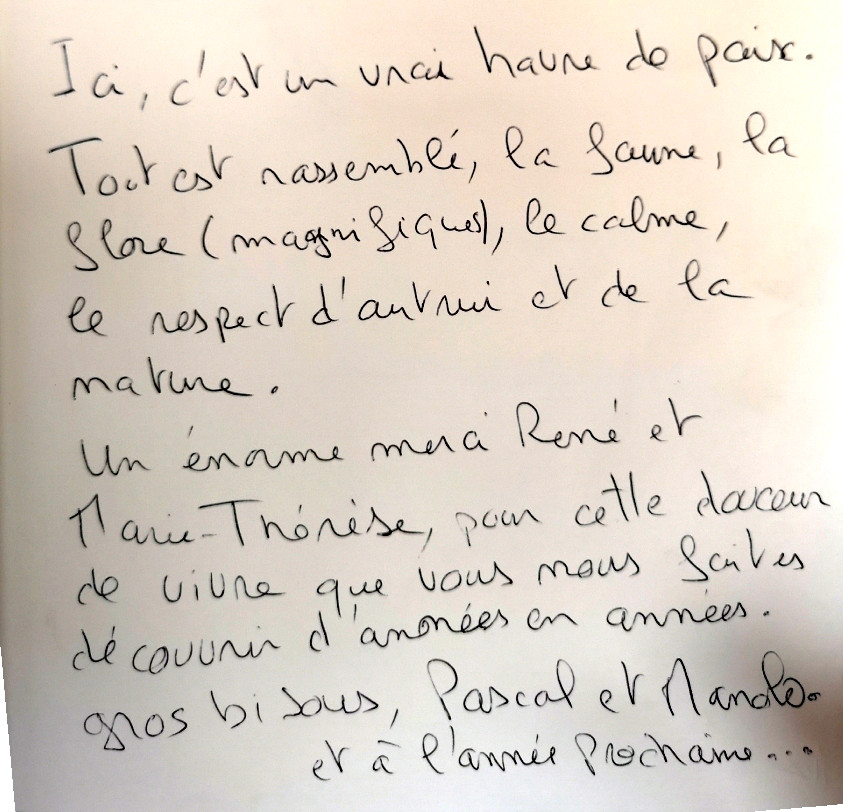 Ici, c'est un vrai havre de paix.
Tout est rassemblé, la faune, la
flore (magnifiques), le calme,
le respect d'autrui et de la
nature.
Un énorme merci René et
Marie-Thérèse, pour cette douceur
de vivre que vous nous faites
découvrir d'années en années.
gros bisous, Pascal et
et à l'année prochaine...